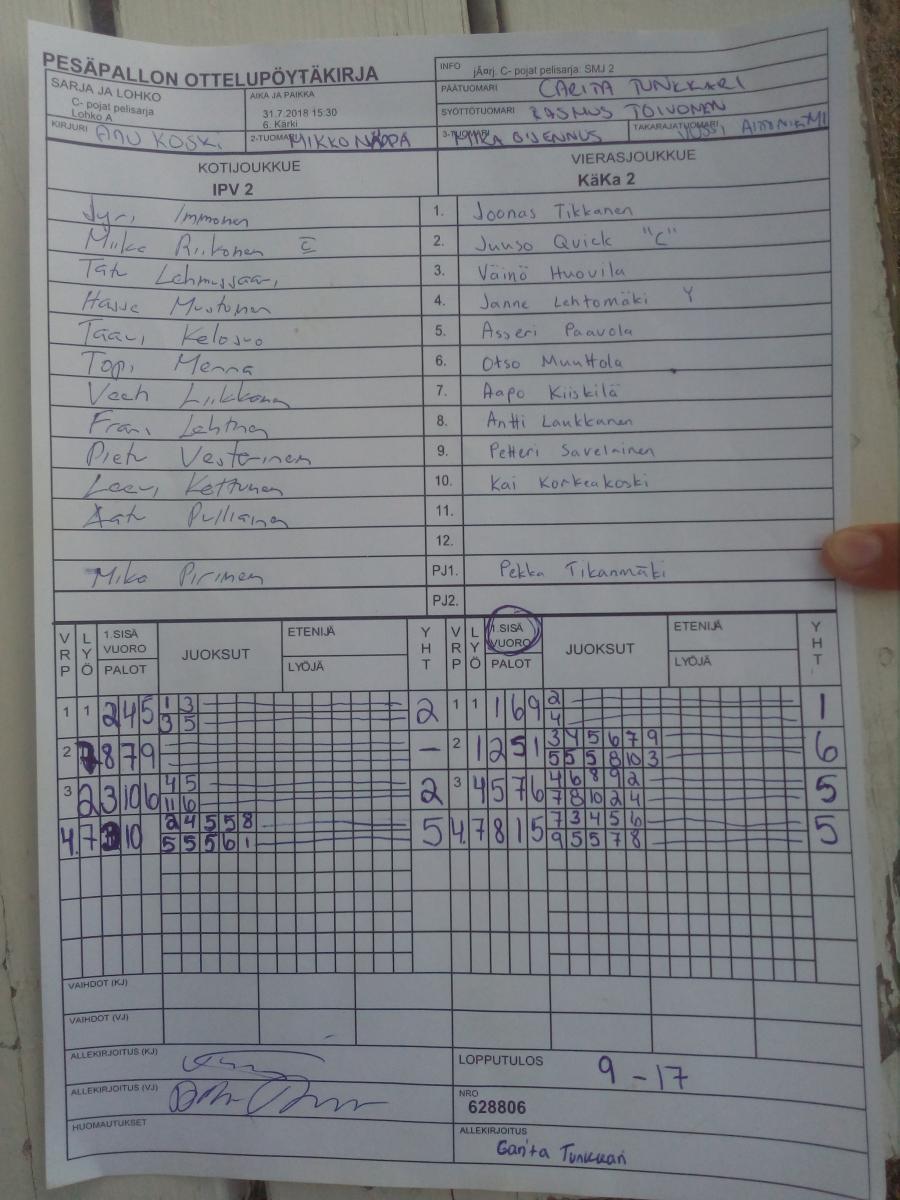 PESÄPALLON OTTELUPÖYTÄKIRJA
INFO jÄœrj. C- pojat pelisarja: SMJ 2
SARJA JA LOHKO
C- pojat pelisarja
Lohko A
AIKA JA PAIKKA
31.7.2018 15:30
6. Kärki
PÄÄTUOMARI CARITA TUNKKARI
SYÖTTÖTUOMARI RASMUS TOIVONEN
KIRJURI ANU KOSKI
2-TUOMARI MIKKO NÄPPÄ
3-TUOMARI MIKA
TAKARAJATUOMARI JUSSI
KOTIJOUKKUE
IPV 2
VIERASJOUKKUE
KäKa 2
Jyri Immonen 1. Joonas Tikkanen
Miika Riikonen C 2. Juuso Quick "C"
Tatu Lehmussaari 3. Väinö Huovila
Hasse Mustonen 4. Janne Lehtomäki Y
Taavi Kelosuo 5. Asseri Paavola
Topi Menna 6. Otso Muuttola
Veeti Liikkanen 7. Aapo Kiiskilä
Frans Lehtinen 8. Antti Laukkanen
Pietu Vesterinen 9. Petteri Savelainen
Leevi Kettunen 10. Kai Korkeakoski
Aatu Pulliainen 11.
12.
Miko Pirinen PJ1. Pekka Tikanmäki
PJ2.
VRP LYÖ 1.SISÄ VUORO PALOT JUOKSUT ETENIJÄ LYÖJÄ YHT VRP LYÖ 1.SISÄ VUORO PALOT JUOKSUT ETENIJÄ LYÖJÄ YHT
1 1 2 4 5 1 3 2 1 1 1 6 9 2 1
3 5 4
2 8 7 9 – 2 1 2 5 1 3 4 5 6 7 9 6
5 5 5 8 10 3
3 2 3 10 6 4 5 2 3 4 5 7 6 4 6 8 9 2 5
11 6 7 8 10 2 4
4. 7 3 10 2 4 5 5 8 5 4. 7 8 1 5 7 3 4 5 6 5
5 5 5 6 1 9 5 5 7 8
VAIHDOT (KJ)
VAIHDOT (VJ)
ALLEKIRJOITUS (KJ)
LOPPUTULOS 9 - 17
ALLEKIRJOITUS (VJ)
NRO
628806
HUOMAUTUKSET
ALLEKIRJOITUS
Carita Tunkkari